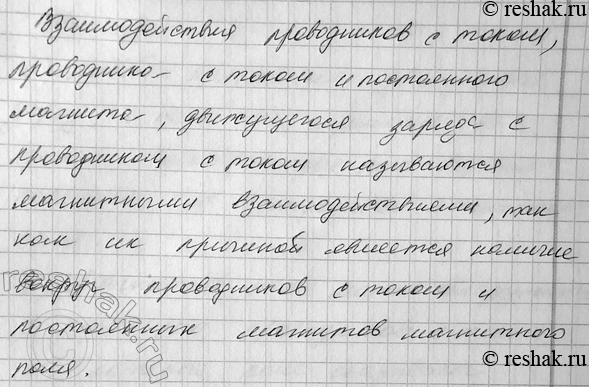 © reshak.ru
Взаимодействия проводников с током,
проводника с током и постоянного
магнита, движущегося заряда с
проводником с током называются
магнитными взаимодействиями, так
как их причиной является наличие
вокруг проводников с током и
постоянных магнитов магнитного
поля.
reshak.ru
© reshak.ru